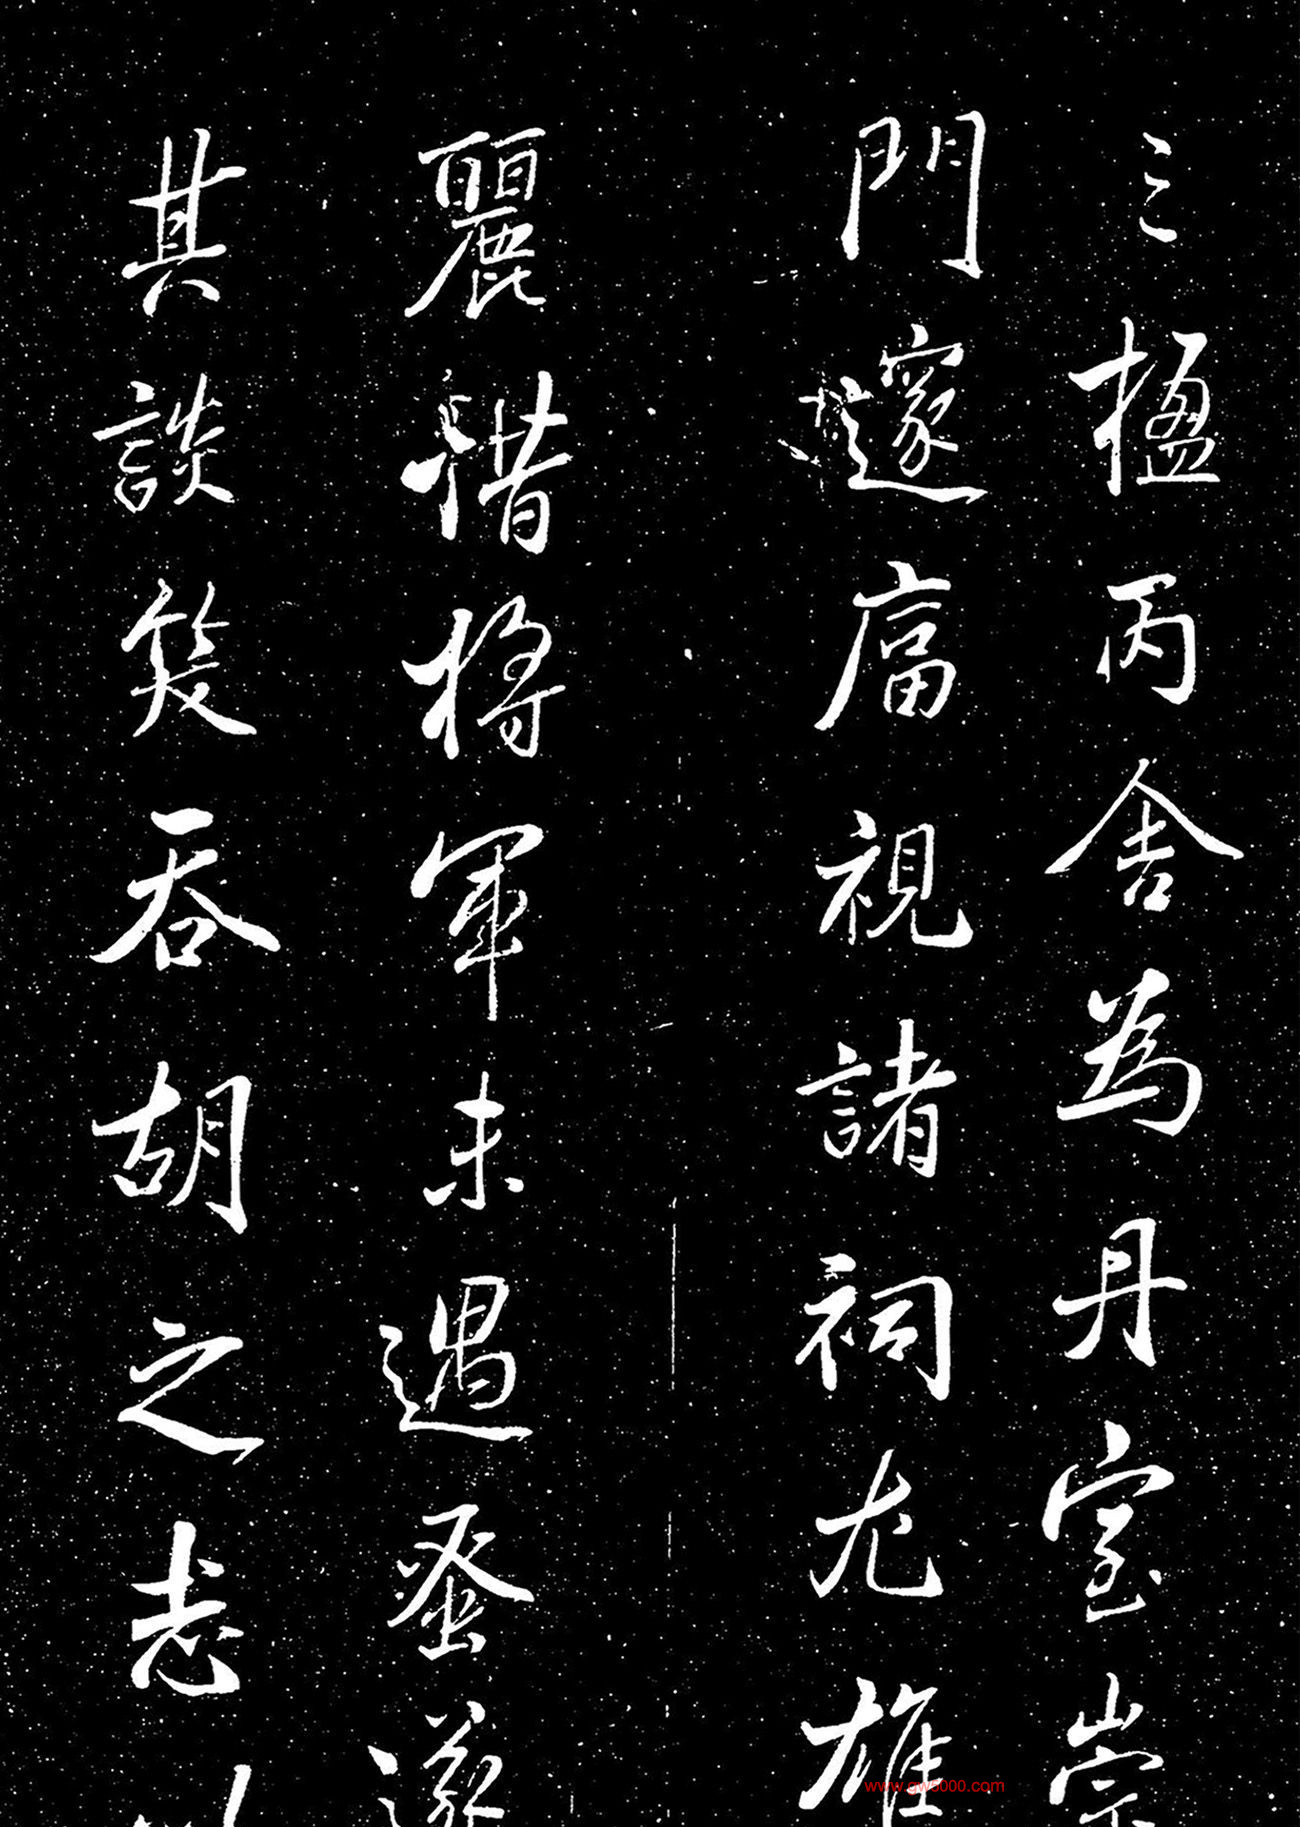 三楹丙舍為丹室崇
門邃廡視諸祠尤雄
麗惜將軍未遇蚤逝
其談笑吞胡之志
www.gw5000.com